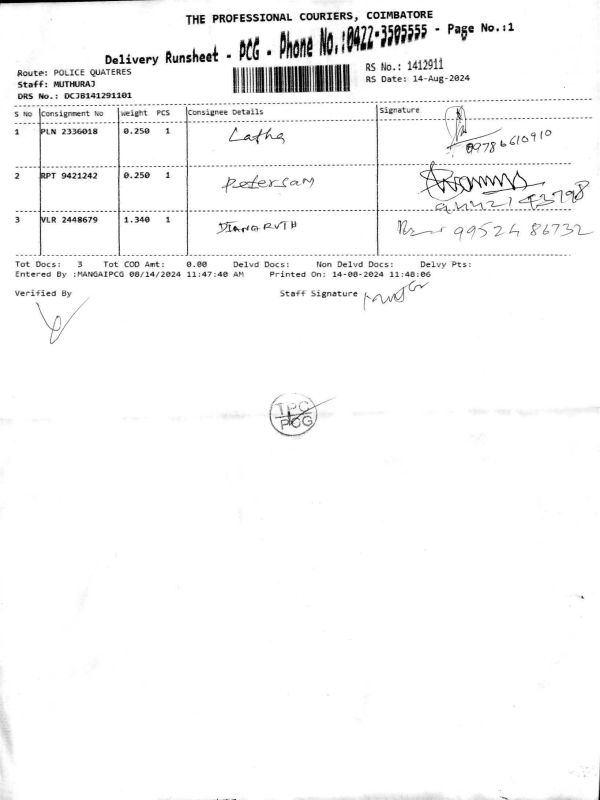 THE PROFESSIONAL COURIERS, COIMBATORE
Delivery Runsheet - PCG - Phone No.:0422-3505555 - Page No.:1
Route: POLICE QUATERES
RS No.: 1412911
Staff: MUTHURAJ
RS Date: 14-Aug-2024
DRS No.: DCJB141291101
S No Consignment No Weight PCS Consignee Details Signature
1 PLN 2336018 0.250 1 Latha 09786610910
2 RPT 9421242 0.250 1 Petersam
3 VLR 2448679 1.340 1 DIANA RUTH 99524 86732
Tot Docs: 3 Tot COD Amt: 0.00 Delvd Docs: Non Delvd Docs: Delvy Pts:
Entered By :MANGAIPCG 08/14/2024 11:47:40 AM Printed On: 14-08-2024 11:48:06
Verified By Staff Signature
TPC
PCG